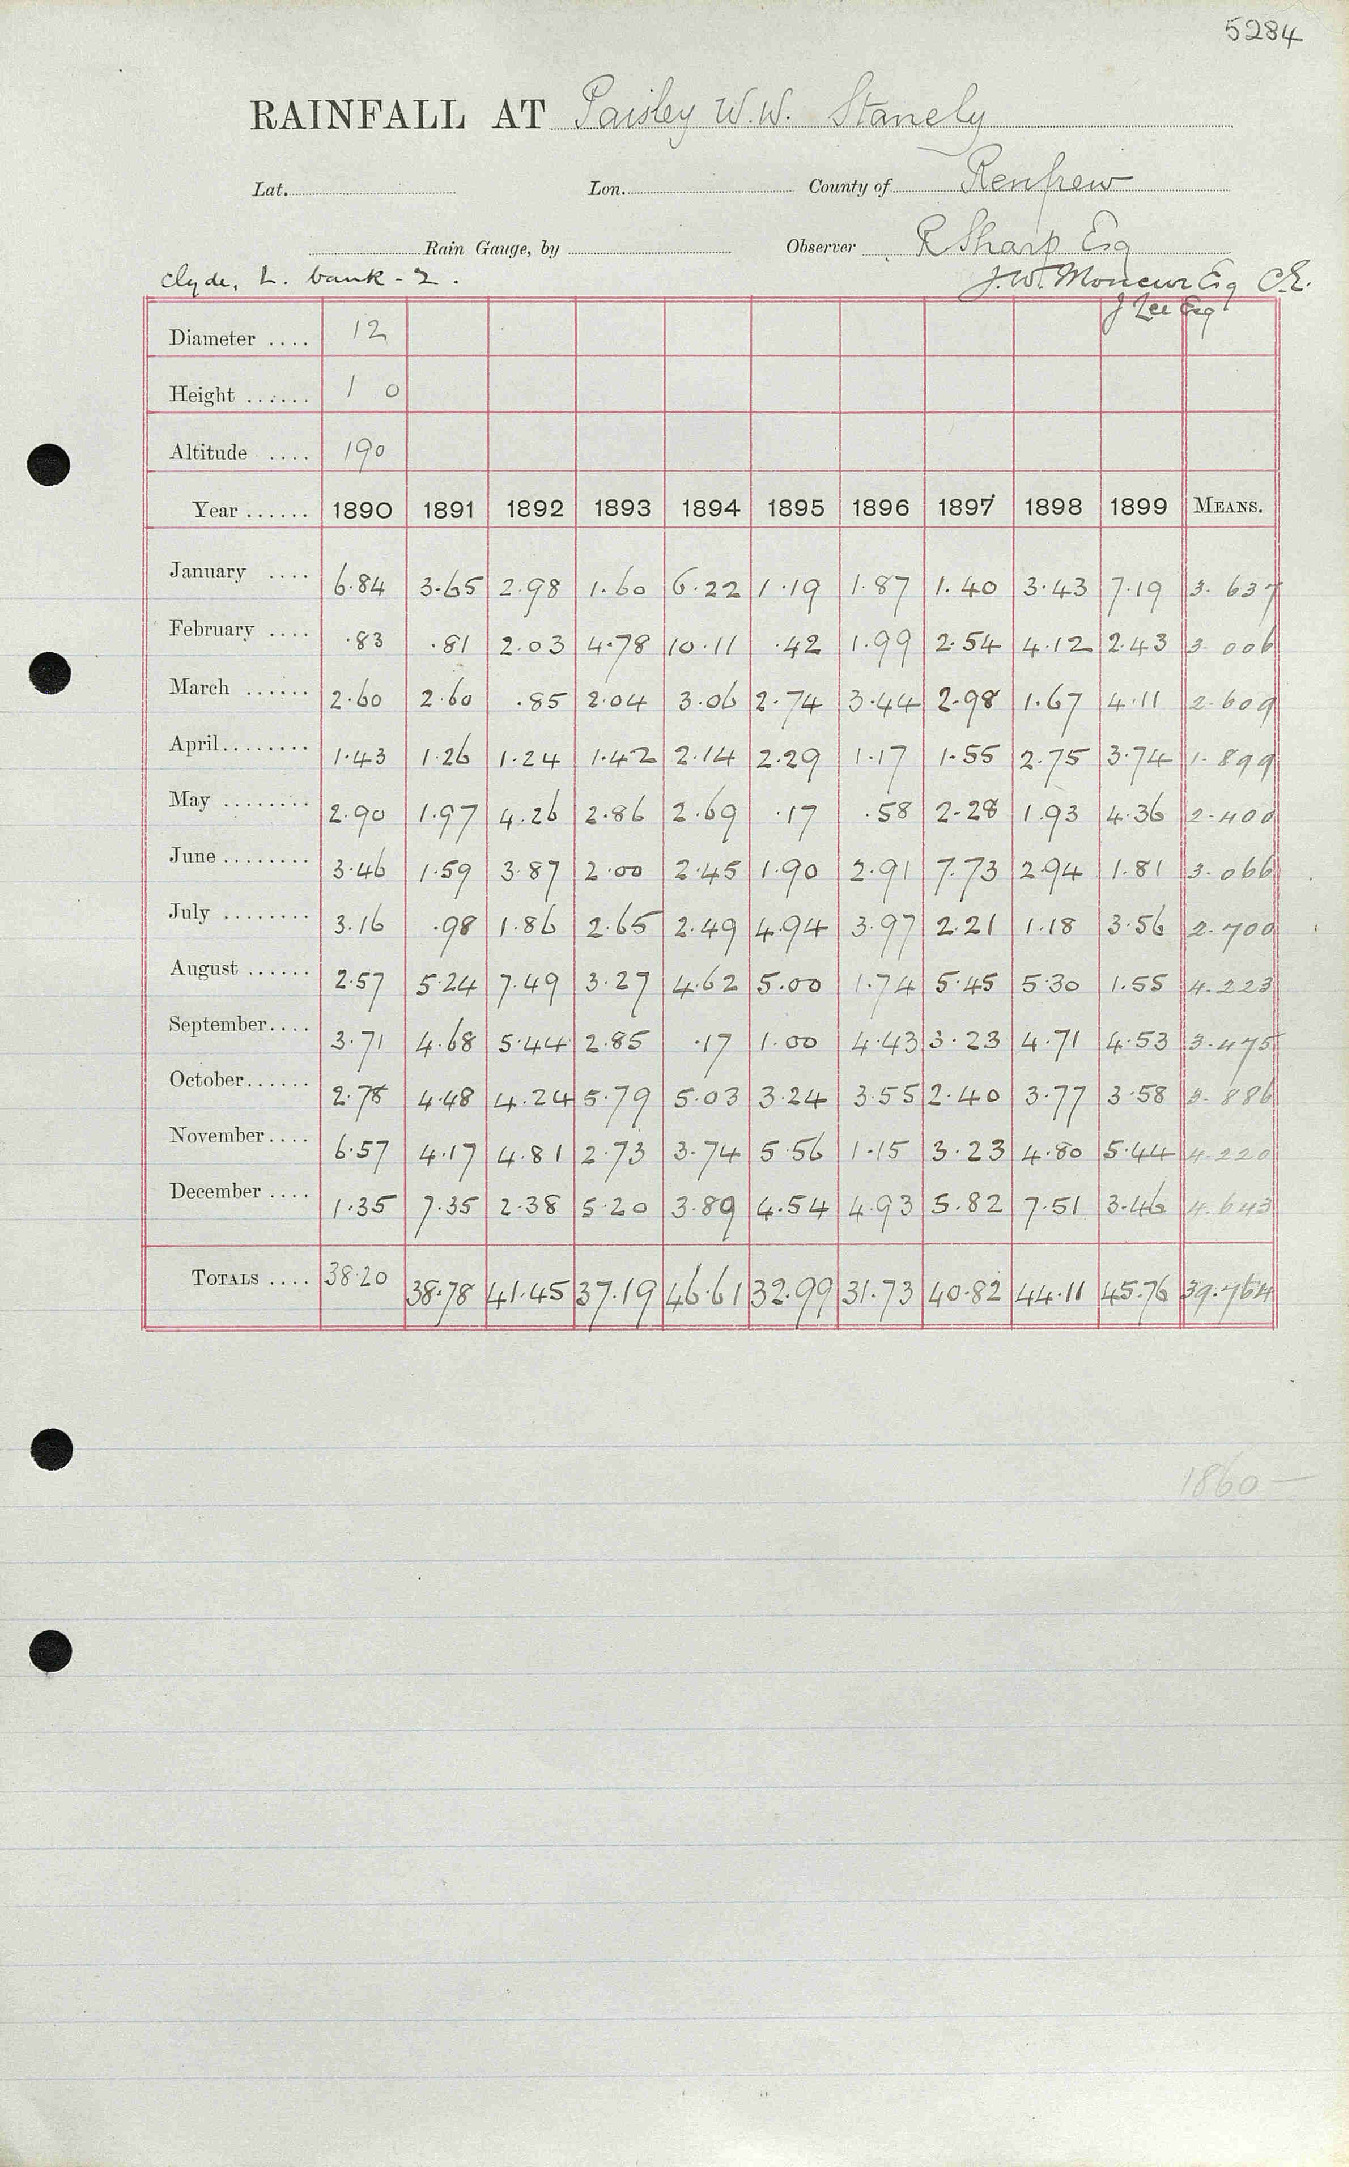 5284
RAINFALL AT Paisley W.W. Stanely
Lat. Lon. County of Renfrew
Rain Gauge, by Observer R Sharp Esq
Clyde, L. bank - 2. J.W. Moncur Esq C.E.
J Lee Esq
Diameter .... 12
Height ...... 1 0
Altitude .... 190
Year ...... 1890 1891 1892 1893 1894 1895 1896 1897 1898 1899 MEANS.
January .... 6.84 3.65 2.98 1.60 6.22 1.19 1.87 1.40 3.43 7.19 3.637
February .... .83 .81 2.03 4.78 10.11 .42 1.99 2.54 4.12 2.43 3.006
March ...... 2.60 2.60 .85 2.04 3.06 2.74 3.44 2.98 1.67 4.11 2.609
April........ 1.43 1.26 1.24 1.42 2.14 2.29 1.17 1.55 2.75 3.74 1.899
May ........ 2.90 1.97 4.26 2.86 2.69 .17 .58 2.28 1.93 4.36 2.400
June ........ 3.46 1.59 3.87 2.00 2.45 1.90 2.91 7.73 2.94 1.81 3.066
July ........ 3.16 .98 1.86 2.65 2.49 4.94 3.97 2.21 1.18 3.56 2.700
August ...... 2.57 5.24 7.49 3.27 4.62 5.00 1.74 5.45 5.30 1.55 4.223
September.... 3.71 4.68 5.44 2.85 .17 1.00 4.43 3.23 4.71 4.53 3.475
October...... 2.78 4.48 4.24 5.79 5.03 3.24 3.55 2.40 3.77 3.58 3.886
November.... 6.57 4.17 4.81 2.73 3.74 5.56 1.15 3.23 4.80 5.44 4.220
December .... 1.35 7.35 2.38 5.20 3.89 4.54 4.93 5.82 7.51 3.46 4.643
TOTALS .... 38.20 38.78 41.45 37.19 46.61 32.99 31.73 40.82 44.11 45.76 39.764
1860 —